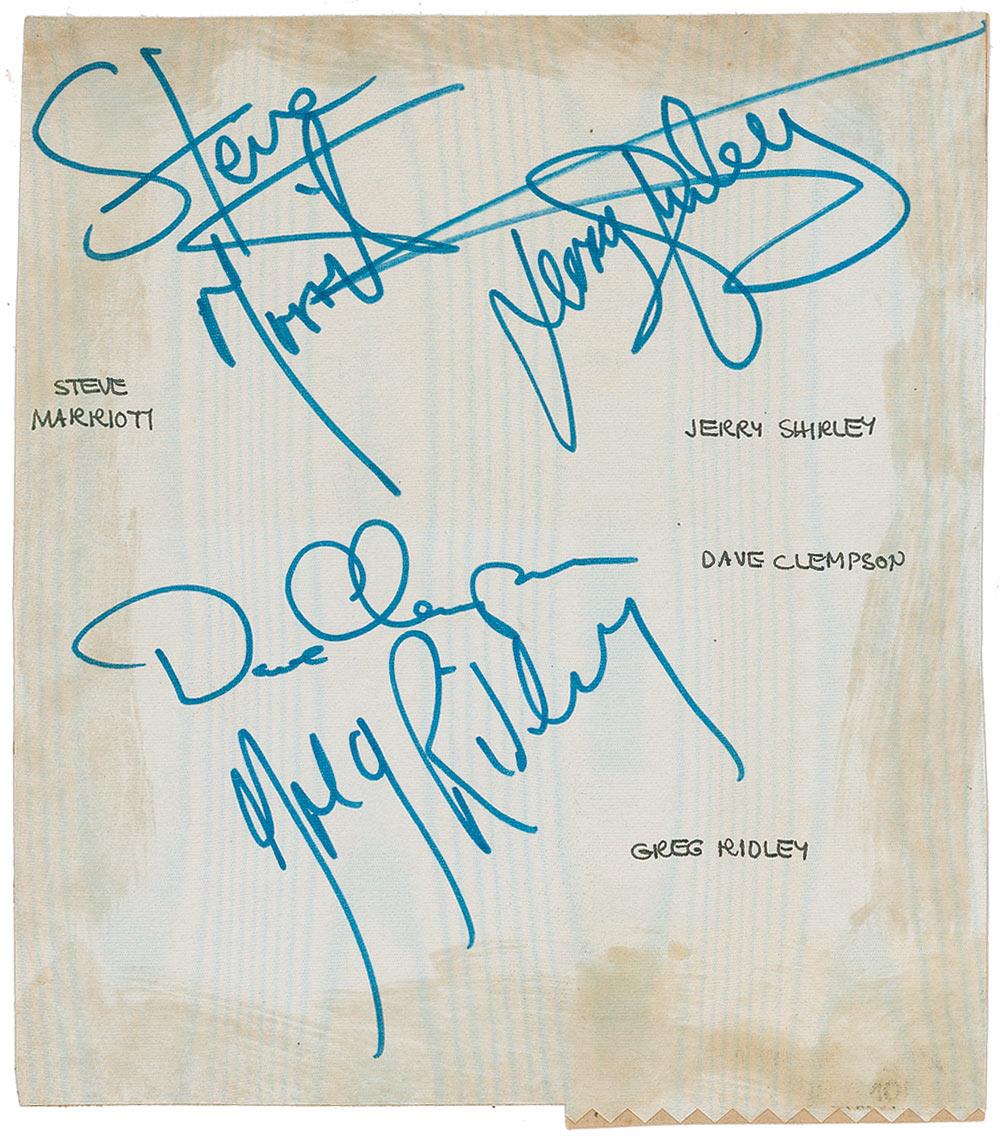 Steve
Marriott
Jerry Shirley
STEVE
MARRIOTT
JERRY SHIRLEY
Dave Clempson
DAVE CLEMPSON
Greg Ridley
GREG RIDLEY